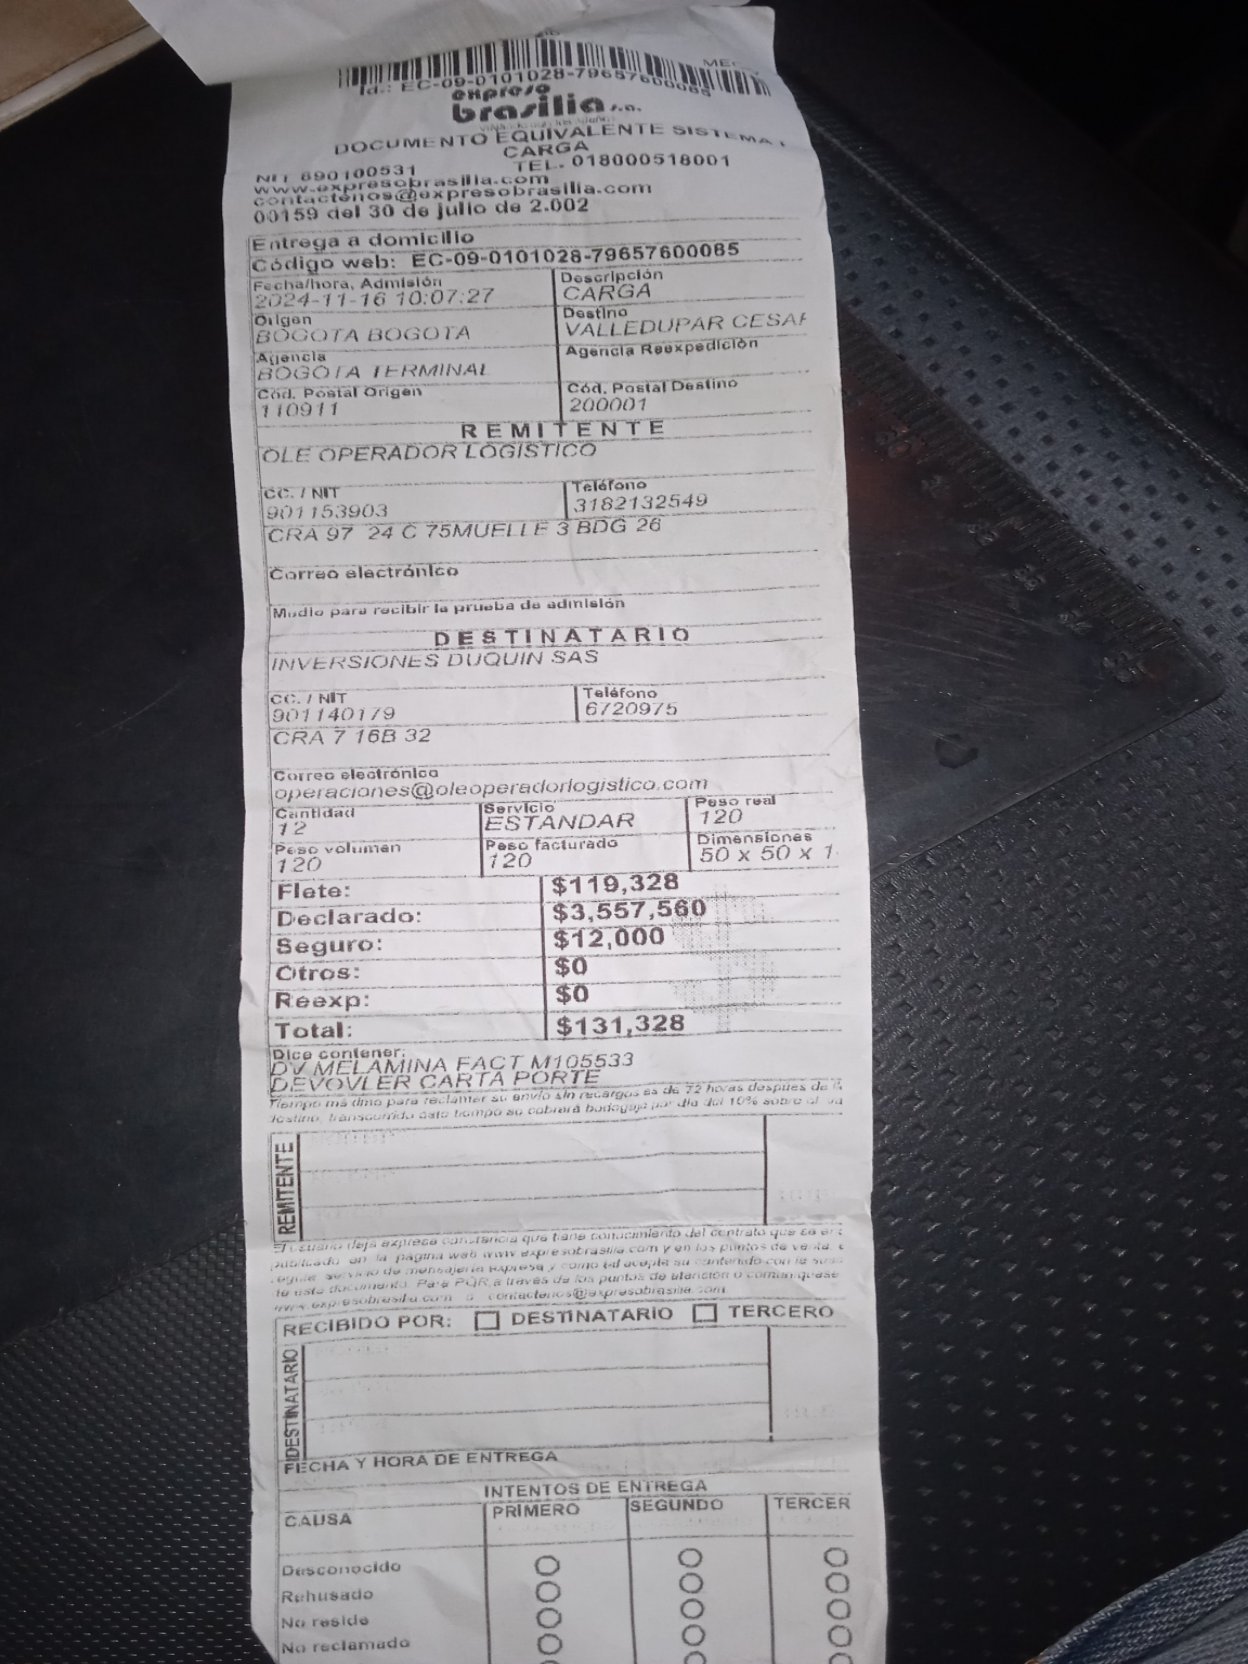 Id.: EC-09-0101028-79657600085
expreso
brasilia s.a.
DOCUMENTO EQUIVALENTE SISTEMA
CARGA
NIT 890100531 TEL. 018000518001
www.expresobrasilia.com
contactenos@expresobrasilia.com
00159 del 30 de julio de 2.002
Entrega a domicilio
Código web: EC-09-0101028-79657600085
Fecha/hora, Admisión Descripción
2024-11-16 10:07:27 CARGA
Origen Destino
BOGOTA BOGOTA VALLEDUPAR CESAR
Agencia Agencia Reexpedición
BOGOTA TERMINAL
Cód. Postal Origen Cód. Postal Destino
110911 200001
REMITENTE
OLE OPERADOR LOGISTICO
CC. / NIT Teléfono
901153903 3182132549
CRA 97 24 C 75MUELLE 3 BDG 26
Correo electrónico
Medio para recibir la prueba de admisión
DESTINATARIO
INVERSIONES DUQUIN SAS
CC. / NIT Teléfono
901140179 6720975
CRA 7 16B 32
Correo electrónico
operaciones@oleoperadorlogistico.com
Cantidad Servicio Peso real
12 ESTANDAR 120
Peso volumen Peso facturado Dimensiones
120 120 50 x 50 x 1
Flete: $119,328
Declarado: $3,557,560
Seguro: $12,000
Otros: $0
Reexp: $0
Total: $131,328
Dice contener:
DV MELAMINA FACT M105533
DEVOVLER CARTA PORTE
Tiempo máximo para reclamar su envío sin recargos es de 72 horas después de
destino, transcurrido este tiempo se cobrará bodegaje por día del 10% sobre el
REMITENTE
El usuario deja expresa constancia que tiene conocimiento del contrato que se
publicado en la página web www.expresobrasilia.com y en los puntos de venta,
servicio de mensajería expresa y como tal acepta su contenido con la
este documento. Para PQR a través de los puntos de atención o comuniquese
www.expresobrasilia.com o contactenos@expresobrasilia.com
RECIBIDO POR: DESTINATARIO TERCERO
DESTINATARIO
FECHA Y HORA DE ENTREGA
INTENTOS DE ENTREGA
CAUSA PRIMERO SEGUNDO TERCER
Desconocido
Rehusado
No reside
No reclamado